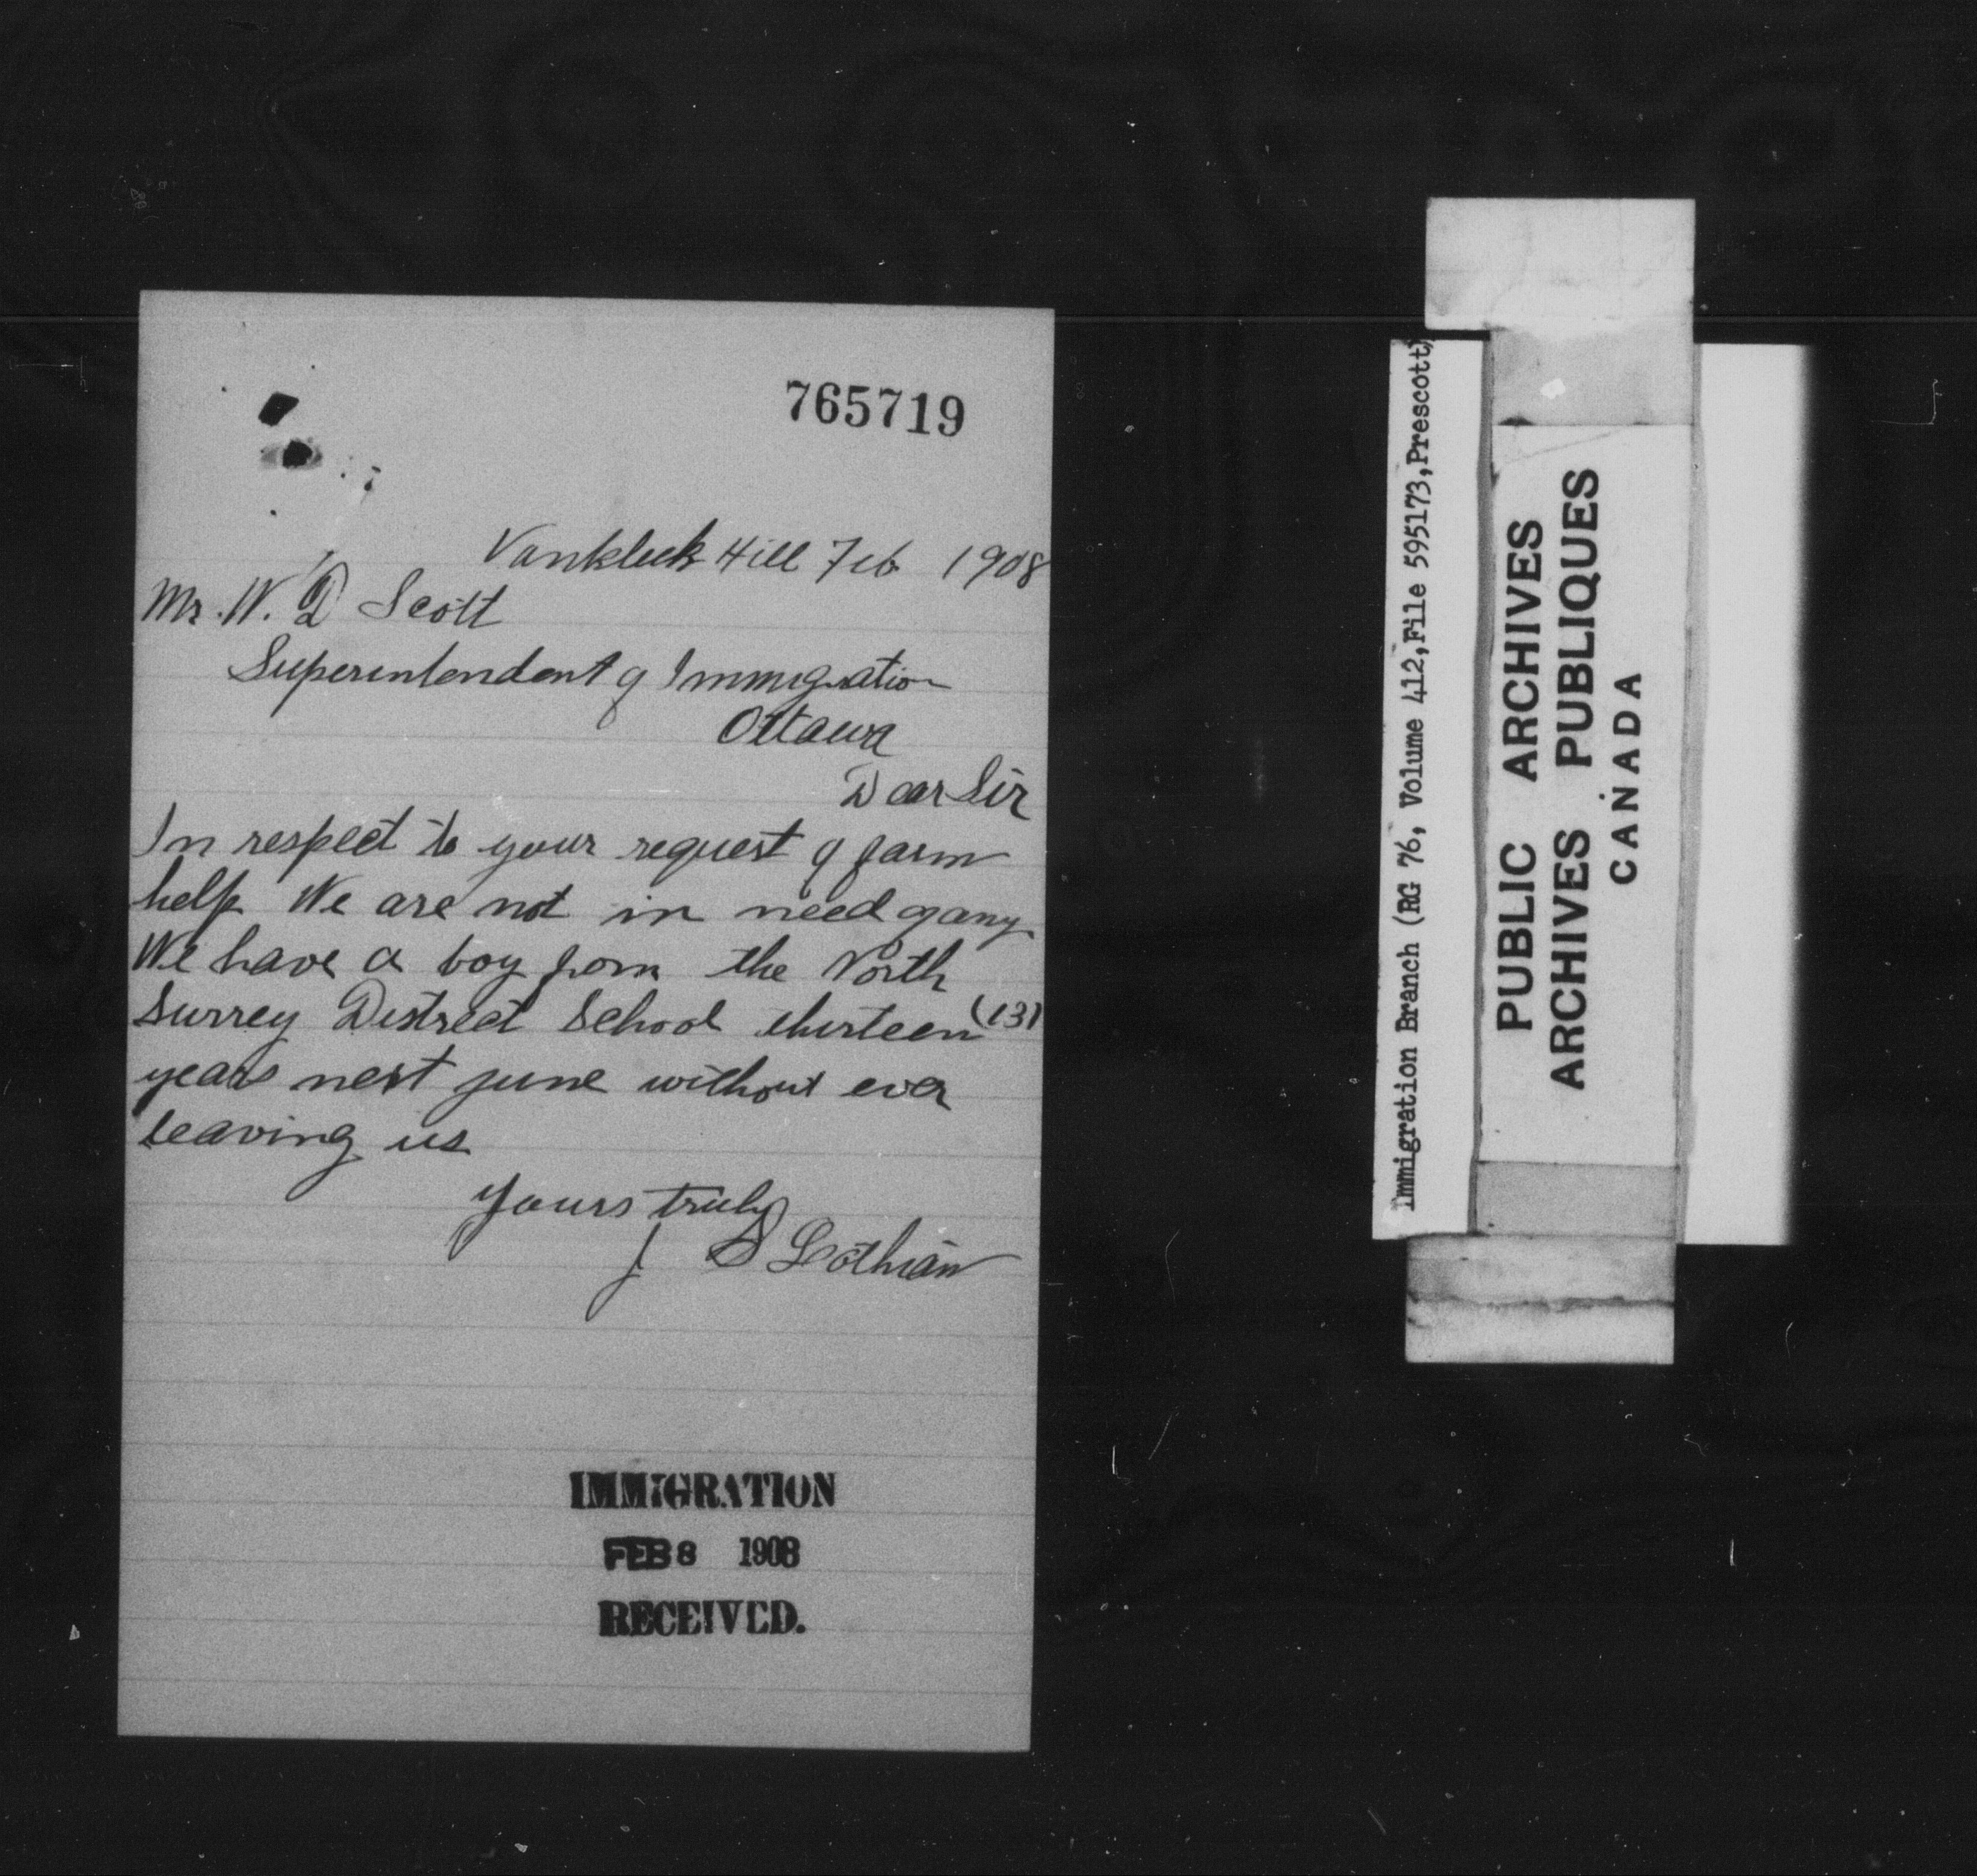 765719
Vankleek Hill Feb 1908
Mr. W. D Scott
Superintendent of Immigration
Ottawa
Dear Sir
In respect to your request of farm
help We are not in need of any
We have a boy from the North
Surrey District School thirteen (13)
years next june without ever
leaving us
Yours truly
J D Lothian
IMMIGRATION
FEB 8 1908
RECEIVED.
Immigration Branch (RG 76, Volume 412,File 595173,Prescott)
PUBLIC ARCHIVES
ARCHIVES PUBLIQUES
CANADA